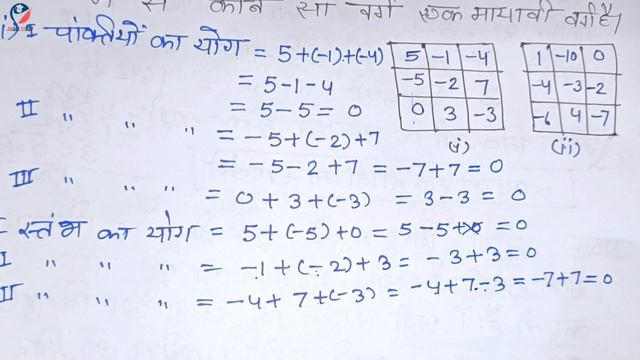 से कौन सा वर्ग एक मायावी वर्ग है।
I पंक्तियों का योग = 5+(-1)+(-4)
= 5-1-4
II " " " = 5-5=0
= -5+(-2)+7
= -5-2+7 = -7+7=0
III " " " = 0+3+(-3) = 3-3= 0
स्तंभ का योग = 5+(-5)+0= 5-5+0 =0
I " " " = -1+(-2)+3= -3+3=0
II " " " = -4+7+(-3)= -4+7-3=-7+7=0
5 -1 -4
-5 -2 7
0 3 -3
(i)
1 -10 0
-4 -3 -2
-6 4 -7
(ii)